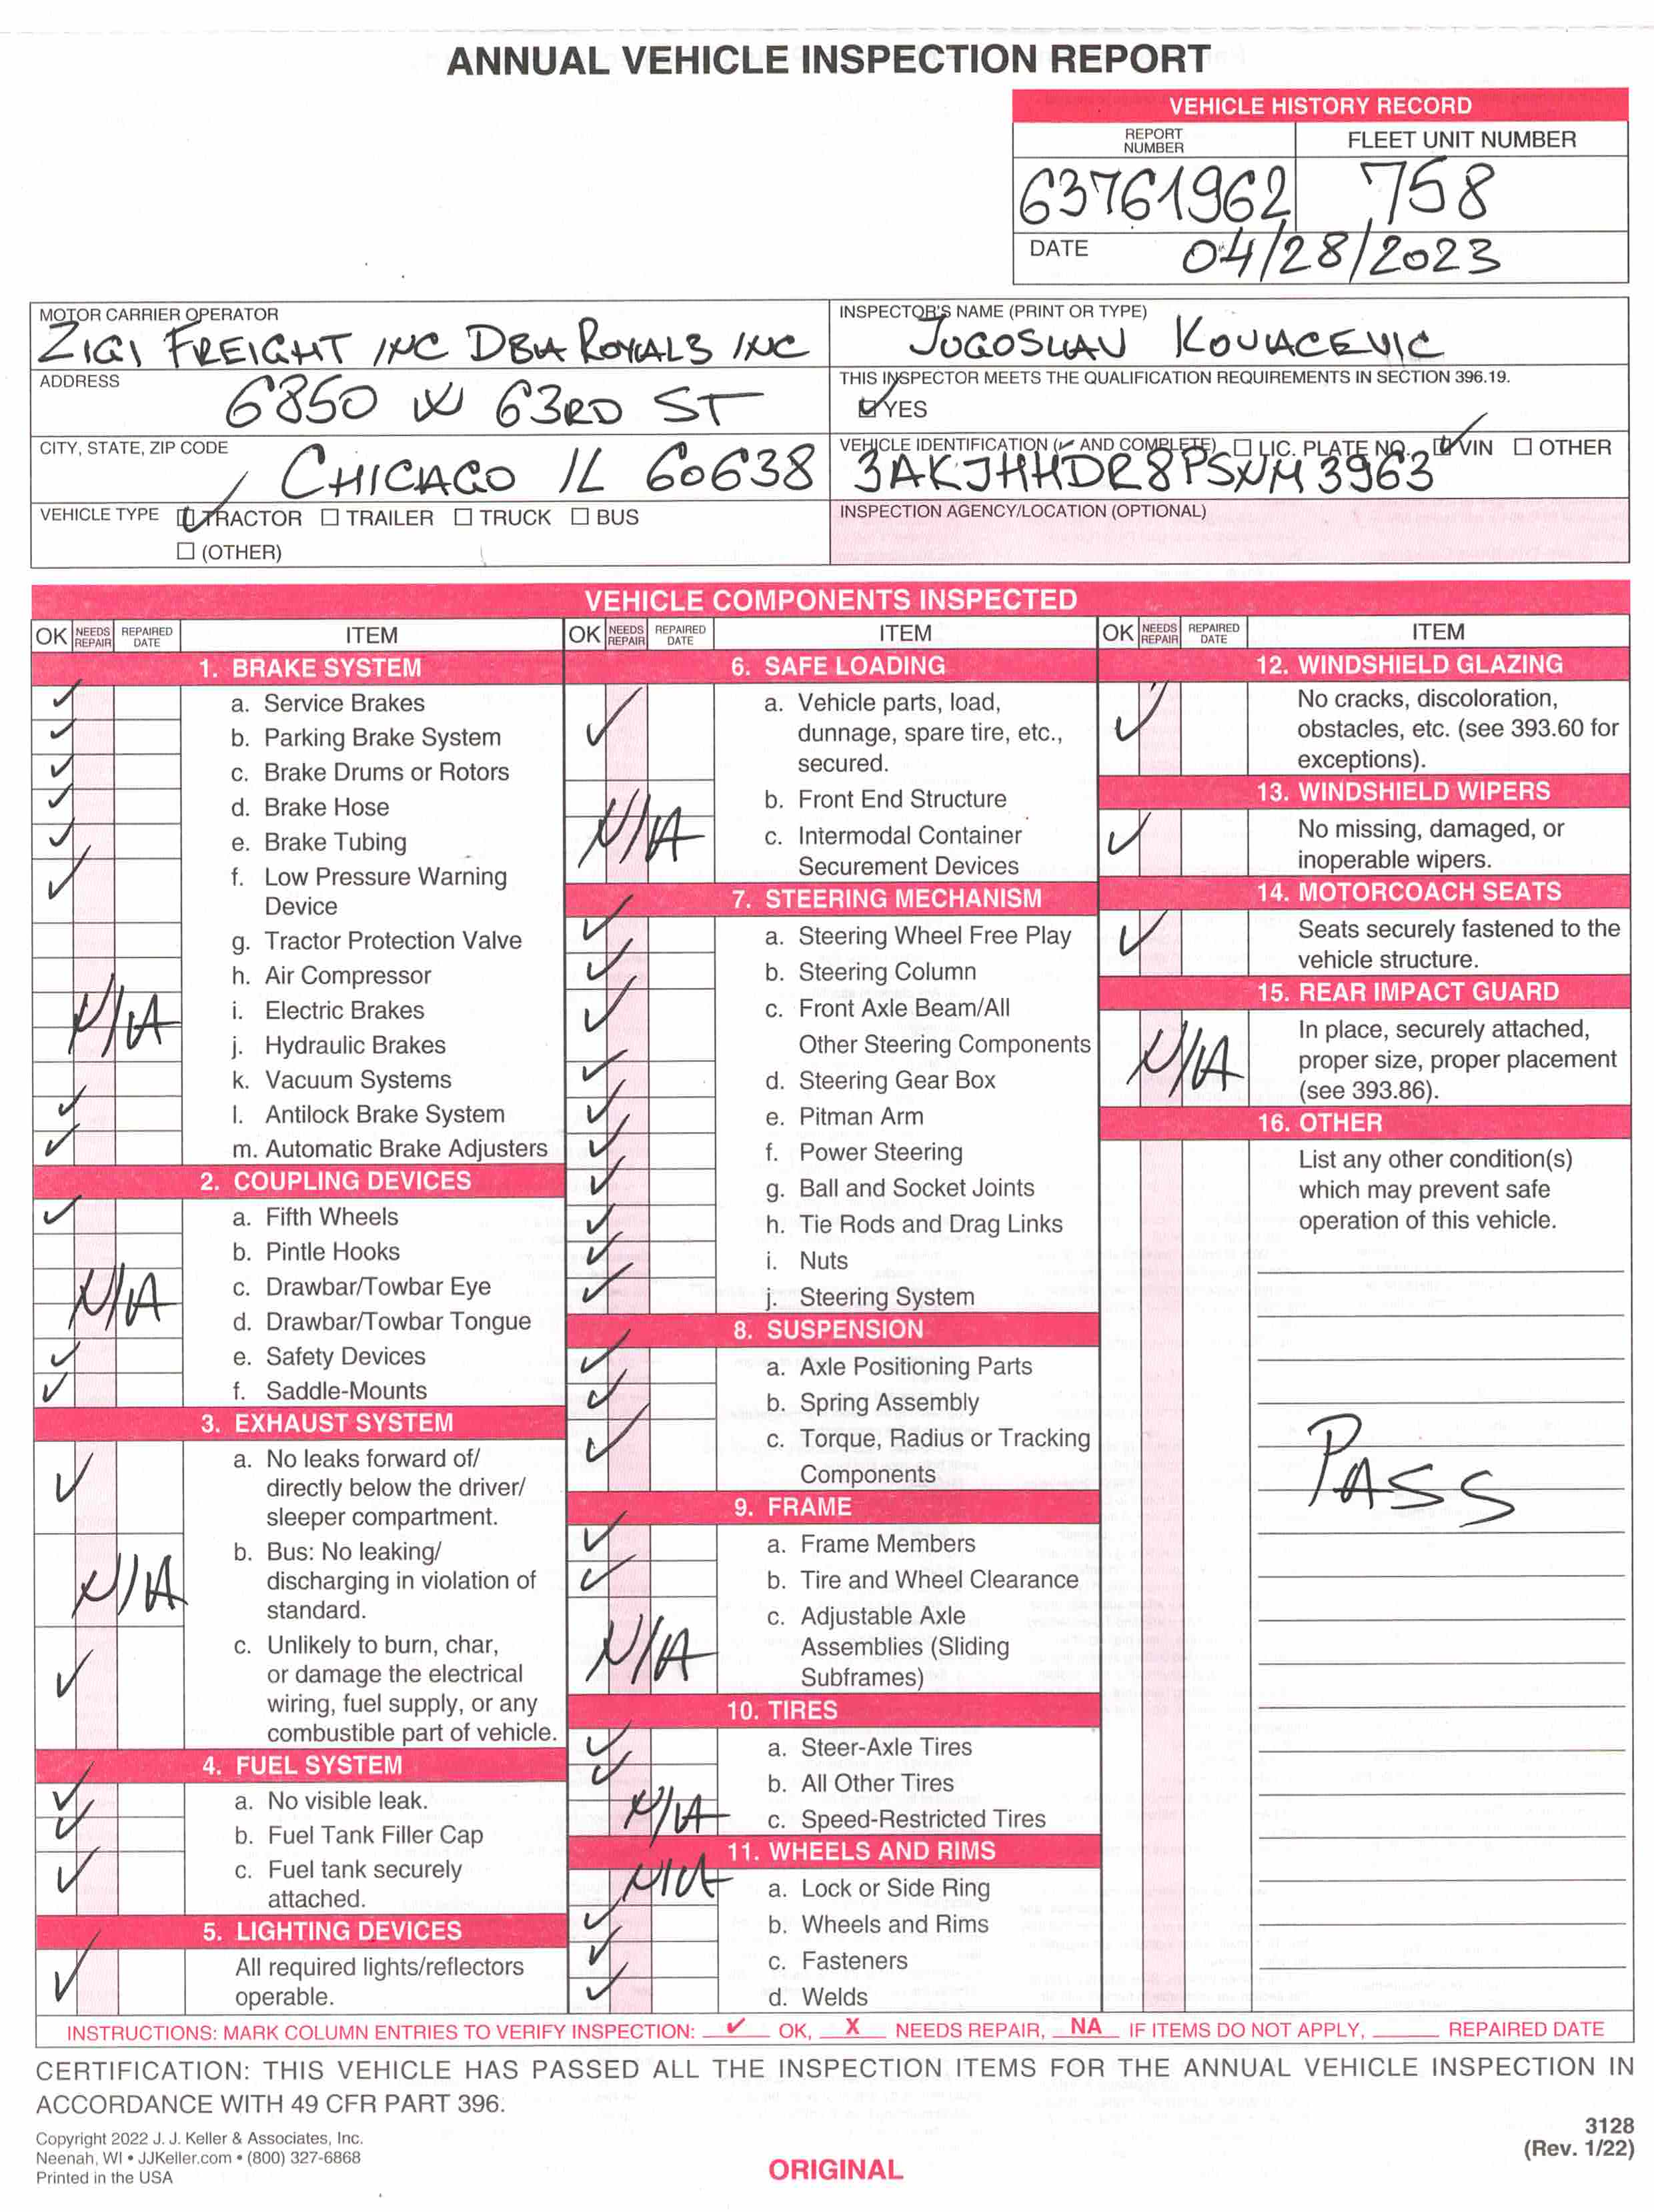 ANNUAL VEHICLE INSPECTION REPORT
VEHICLE HISTORY RECORD
REPORT NUMBER
FLEET UNIT NUMBER
63761962
758
DATE 04/28/2023
MOTOR CARRIER OPERATOR
ZIGI FREIGHT INC DBA ROYALS INC
ADDRESS
6850 W 63RD ST
CITY, STATE, ZIP CODE
CHICAGO IL 60638
VEHICLE TYPE ☑ TRACTOR ☐ TRAILER ☐ TRUCK ☐ BUS
☐ (OTHER)
INSPECTOR'S NAME (PRINT OR TYPE)
JUGOSLAV KOVACEVIC
THIS INSPECTOR MEETS THE QUALIFICATION REQUIREMENTS IN SECTION 396.19.
☑ YES
VEHICLE IDENTIFICATION (✓ AND COMPLETE) ☐ LIC. PLATE NO. ☑ VIN ☐ OTHER
3AKJHHDR8PSNM3963
INSPECTION AGENCY/LOCATION (OPTIONAL)
VEHICLE COMPONENTS INSPECTED
OK NEEDS REPAIR REPAIRED DATE ITEM
1. BRAKE SYSTEM
✓ a. Service Brakes
✓ b. Parking Brake System
✓ c. Brake Drums or Rotors
✓ d. Brake Hose
✓ e. Brake Tubing
✓ f. Low Pressure Warning
Device
g. Tractor Protection Valve
h. Air Compressor
N/A i. Electric Brakes
j. Hydraulic Brakes
k. Vacuum Systems
✓ l. Antilock Brake System
✓ m. Automatic Brake Adjusters
2. COUPLING DEVICES
✓ a. Fifth Wheels
b. Pintle Hooks
N/A c. Drawbar/Towbar Eye
d. Drawbar/Towbar Tongue
✓ e. Safety Devices
✓ f. Saddle-Mounts
3. EXHAUST SYSTEM
✓ a. No leaks forward of/
directly below the driver/
sleeper compartment.
N/A b. Bus: No leaking/
discharging in violation of
standard.
✓ c. Unlikely to burn, char,
or damage the electrical
wiring, fuel supply, or any
combustible part of vehicle.
4. FUEL SYSTEM
✓ a. No visible leak.
✓ b. Fuel Tank Filler Cap
✓ c. Fuel tank securely
attached.
5. LIGHTING DEVICES
✓ All required lights/reflectors
operable.
OK NEEDS REPAIR REPAIRED DATE ITEM
6. SAFE LOADING
✓ a. Vehicle parts, load,
dunnage, spare tire, etc.,
secured.
b. Front End Structure
N/A c. Intermodal Container
Securement Devices
7. STEERING MECHANISM
✓ a. Steering Wheel Free Play
✓ b. Steering Column
✓ c. Front Axle Beam/All
Other Steering Components
✓ d. Steering Gear Box
✓ e. Pitman Arm
✓ f. Power Steering
✓ g. Ball and Socket Joints
✓ h. Tie Rods and Drag Links
✓ i. Nuts
✓ j. Steering System
8. SUSPENSION
✓ a. Axle Positioning Parts
✓ b. Spring Assembly
✓ c. Torque, Radius or Tracking
Components
9. FRAME
✓ a. Frame Members
✓ b. Tire and Wheel Clearance
N/A c. Adjustable Axle
Assemblies (Sliding
Subframes)
10. TIRES
✓ a. Steer-Axle Tires
✓ b. All Other Tires
N/A c. Speed-Restricted Tires
11. WHEELS AND RIMS
N/A a. Lock or Side Ring
✓ b. Wheels and Rims
✓ c. Fasteners
✓ d. Welds
OK NEEDS REPAIR REPAIRED DATE ITEM
12. WINDSHIELD GLAZING
✓ No cracks, discoloration,
obstacles, etc. (see 393.60 for
exceptions).
13. WINDSHIELD WIPERS
✓ No missing, damaged, or
inoperable wipers.
14. MOTORCOACH SEATS
✓ Seats securely fastened to the
vehicle structure.
15. REAR IMPACT GUARD
N/A In place, securely attached,
proper size, proper placement
(see 393.86).
16. OTHER
List any other condition(s)
which may prevent safe
operation of this vehicle.
PASS
INSTRUCTIONS: MARK COLUMN ENTRIES TO VERIFY INSPECTION: ✓ OK, X NEEDS REPAIR, NA IF ITEMS DO NOT APPLY, ______ REPAIRED DATE
CERTIFICATION: THIS VEHICLE HAS PASSED ALL THE INSPECTION ITEMS FOR THE ANNUAL VEHICLE INSPECTION IN
ACCORDANCE WITH 49 CFR PART 396.
Copyright 2022 J. J. Keller & Associates, Inc.
Neenah, WI • JJKeller.com • (800) 327-6868
Printed in the USA
ORIGINAL
3128
(Rev. 1/22)